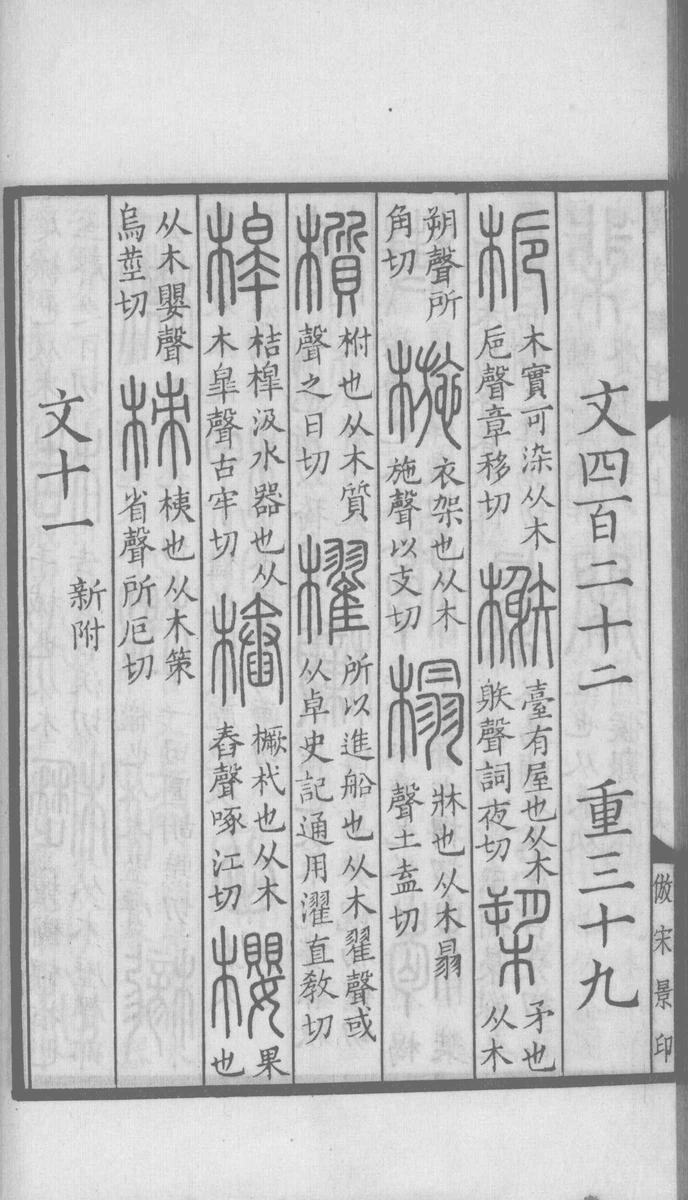 文四百二十二 重三十九
梔 木實可染从木巵聲章移切 榭 臺有屋也从木䠶聲詞夜切 槊 矛也从木
朔聲所角切 椸 衣架也从木施聲以支切 榻 牀也从木㬱聲土盍切
櫍 柎也从木質聲之日切 櫂 所以進船也从木翟聲或从卓史記通用濯直教切
槔 桔槔汲水器也从木皐聲古牢切 樁 橛杙也从木舂聲啄江切 櫻 果也
从木嬰聲烏莖切 梀 桋也从木策省聲所厄切
文十一 新附
倣宋景印